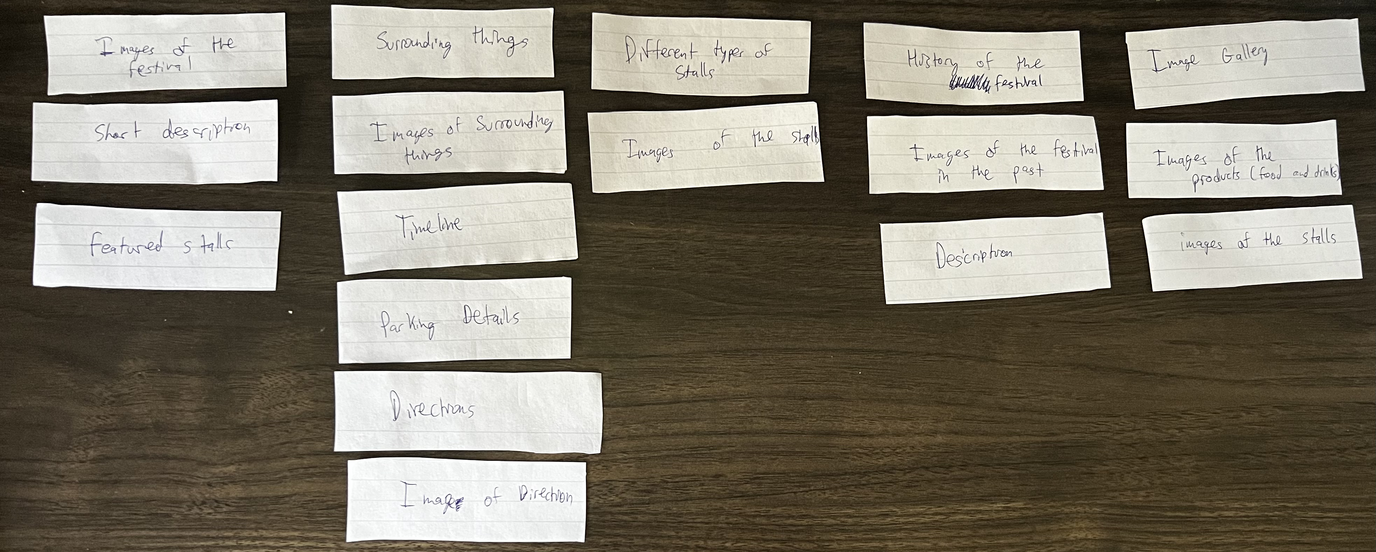 Images of the
festival
Short description
Featured stalls
Surrounding things
Images of Surrounding
things
Timeline
Parking Details
Directions
Image of Direction
Different types of
Stalls
Images of the stalls
History of the
festival
Images of the festival
in the past
Description
Image Gallery
Images of the
products (food and drinks)
images of the stalls